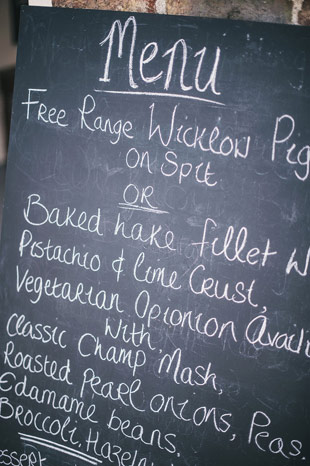 Menu
Free Range Wicklow Pig
on Spit
OR
Baked hake fillet w
Pistachio & Lime Crust,
Vegetarian Opionion Avail
with
Classic Champ Mash,
Roasted Pearl onions, Peas.
Edamame beans,
Broccoli, Hazeln
essert